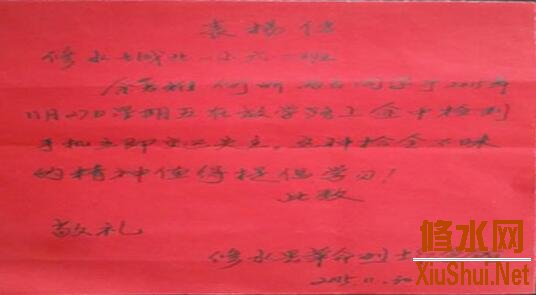 表扬信
修水县城北一小六一班
余 何 两名同学于2015年
11月27日星期五在放学路上 中捡到
手机立即 失主,这种拾金不昧
的精神值得提倡学习!
此致
敬礼
修水县革命烈士
2015.11.30
修水网
XiuShui.Net